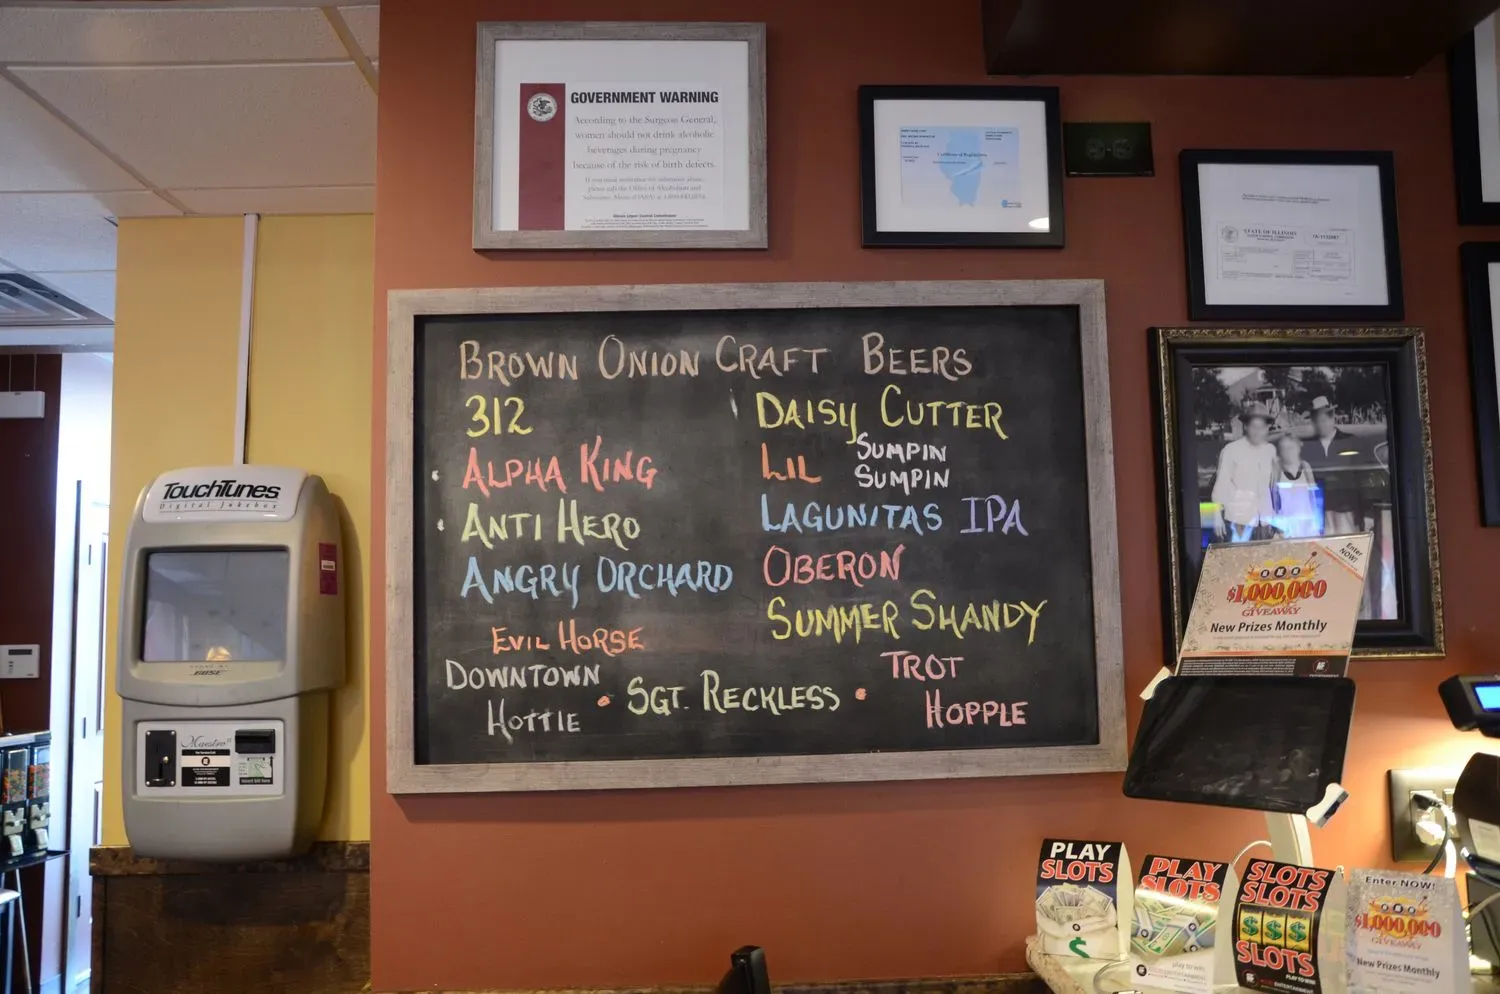 GOVERNMENT WARNING
According to the Surgeon General,
women should not drink alcoholic
beverages during pregnancy
because of the risk of birth defects.
Certificate of Registration
STATE OF ILLINOIS
BROWN ONION CRAFT BEERS
312
ALPHA KING
ANTI HERO
ANGRY ORCHARD
EVIL HORSE
DOWNTOWN
HOTTIE
SGT. RECKLESS
DAISY CUTTER
LIL SUMPIN
SUMPIN
LAGUNITAS IPA
OBERON
SUMMER SHANDY
TROT
HOPPLE
TouchTunes
Digital Jukebox
BOSE
Maestro
Enter
NOW!
$1,000,000
GIVEAWAY
New Prizes Monthly
PLAY
SLOTS
PLAY
SLOTS
play to win
SLOTS
SLOTS
$ $ $
SLOTS
PLAY TO WIN
Enter NOW!
$1,000,000
GIVEAWAY
New Prizes Monthly